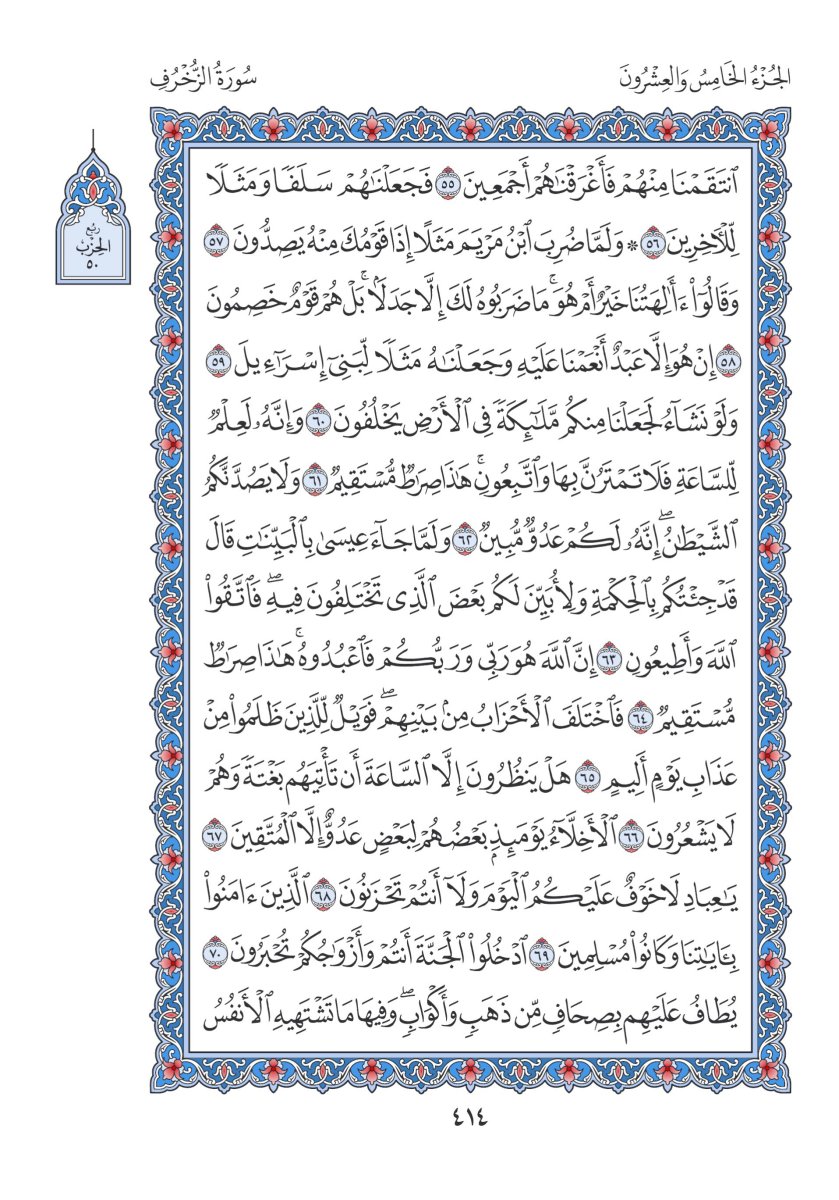 الجُزْءُ الخَامِسُ وَالعِشْرُونَ
سُورَةُ الزُّخْرُفِ
رُبْعُ
الحِزْبُ
٥٠
ٱنتَقَمۡنَا مِنۡهُمۡ فَأَغۡرَقۡنَٰهُمۡ أَجۡمَعِينَ ٥٥ فَجَعَلۡنَٰهُمۡ سَلَفٗا وَمَثَلٗا
لِّلۡأٓخِرِينَ ٥٦ * وَلَمَّا ضُرِبَ ٱبۡنُ مَرۡيَمَ مَثَلًا إِذَا قَوۡمُكَ مِنۡهُ يَصِدُّونَ ٥٧
وَقَالُوٓاْ ءَأَٰلِهَتُنَا خَيۡرٌ أَمۡ هُوَۚ مَا ضَرَبُوهُ لَكَ إِلَّا جَدَلَۢاۚ بَلۡ هُمۡ قَوۡمٌ خَصِمُونَ
٥٨ إِنۡ هُوَ إِلَّا عَبۡدٌ أَنۡعَمۡنَا عَلَيۡهِ وَجَعَلۡنَٰهُ مَثَلٗا لِّبَنِيٓ إِسۡرَٰٓءِيلَ ٥٩
وَلَوۡ نَشَآءُ لَجَعَلۡنَا مِنكُم مَّلَٰٓئِكَةٗ فِي ٱلۡأَرۡضِ يَخۡلُفُونَ ٦٠ وَإِنَّهُۥ لَعِلۡمٞ
لِّلسَّاعَةِ فَلَا تَمۡتَرُنَّ بِهَا وَٱتَّبِعُونِۚ هَٰذَا صِرَٰطٞ مُّسۡتَقِيمٞ ٦١ وَلَا يَصُدَّنَّكُمُ
ٱلشَّيۡطَٰنُۖ إِنَّهُۥ لَكُمۡ عَدُوّٞ مُّبِينٞ ٦٢ وَلَمَّا جَآءَ عِيسَىٰ بِٱلۡبَيِّنَٰتِ قَالَ
قَدۡ جِئۡتُكُم بِٱلۡحِكۡمَةِ وَلِأُبَيِّنَ لَكُم بَعۡضَ ٱلَّذِي تَخۡتَلِفُونَ فِيهِۖ فَٱتَّقُواْ
ٱللَّهَ وَأَطِيعُونِ ٦٣ إِنَّ ٱللَّهَ هُوَ رَبِّي وَرَبُّكُمۡ فَٱعۡبُدُوهُۚ هَٰذَا صِرَٰطٞ
مُّسۡتَقِيمٞ ٦٤ فَٱخۡتَلَفَ ٱلۡأَحۡزَابُ مِنۢ بَيۡنِهِمۡۖ فَوَيۡلٞ لِّلَّذِينَ ظَلَمُواْ مِنۡ
عَذَابِ يَوۡمٍ أَلِيمٍ ٦٥ هَلۡ يَنظُرُونَ إِلَّا ٱلسَّاعَةَ أَن تَأۡتِيَهُم بَغۡتَةٗ وَهُمۡ
لَا يَشۡعُرُونَ ٦٦ ٱلۡأَخِلَّآءُ يَوۡمَئِذِۭ بَعۡضُهُمۡ لِبَعۡضٍ عَدُوٌّ إِلَّا ٱلۡمُتَّقِينَ ٦٧
يَٰعِبَادِ لَا خَوۡفٌ عَلَيۡكُمُ ٱلۡيَوۡمَ وَلَآ أَنتُمۡ تَحۡزَنُونَ ٦٨ ٱلَّذِينَ ءَامَنُواْ
بِـَٔايَٰتِنَا وَكَانُواْ مُسۡلِمِينَ ٦٩ ٱدۡخُلُواْ ٱلۡجَنَّةَ أَنتُمۡ وَأَزۡوَٰجُكُمۡ تُحۡبَرُونَ ٧٠
يُطَافُ عَلَيۡهِم بِصِحَافٖ مِّن ذَهَبٖ وَأَكۡوَابٖۖ وَفِيهَا مَا تَشۡتَهِيهِ ٱلۡأَنفُسُ
٤١٤